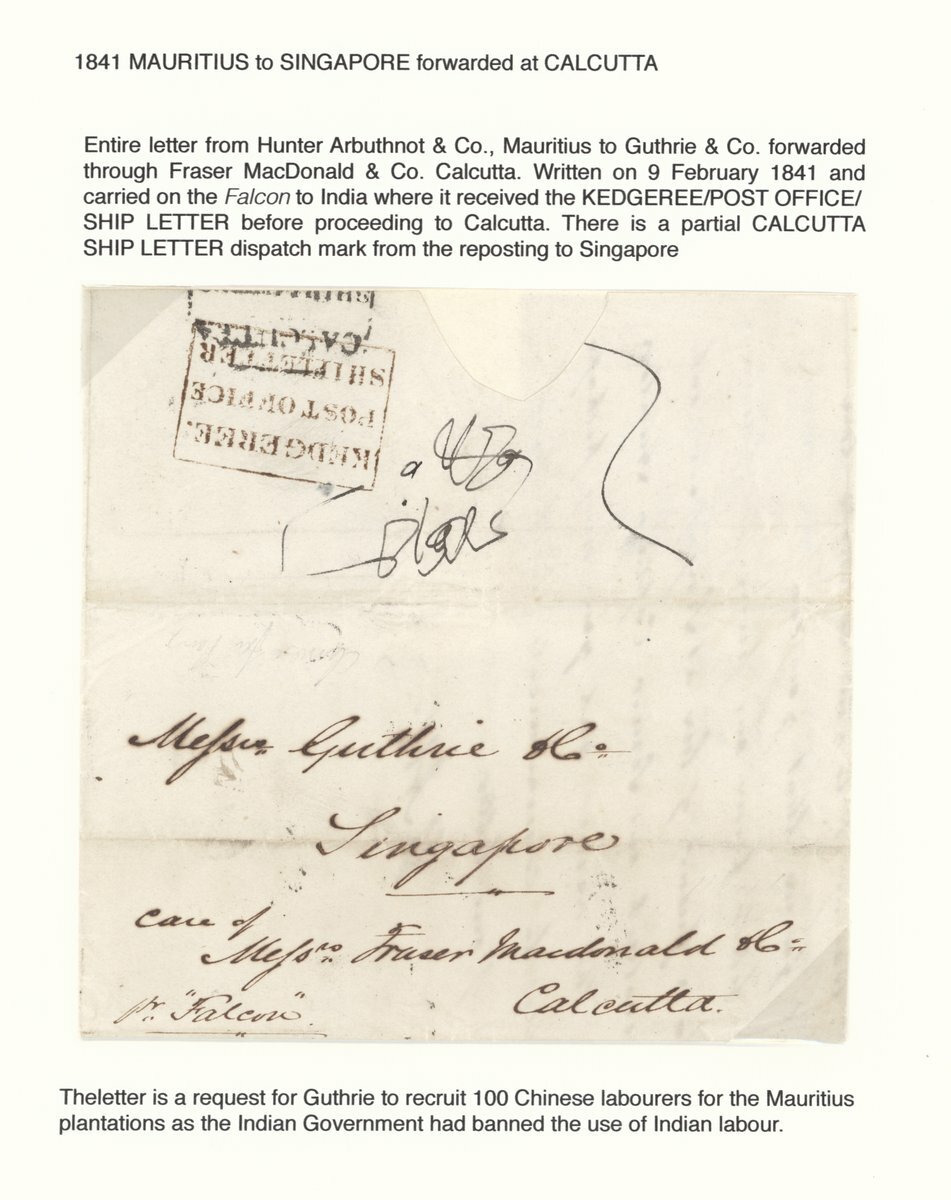 1841 MAURITIUS to SINGAPORE forwarded at CALCUTTA
Entire letter from Hunter Arbuthnot & Co., Mauritius to Guthrie & Co. forwarded
through Fraser MacDonald & Co. Calcutta. Written on 9 February 1841 and
carried on the Falcon to India where it received the KEDGEREE/POST OFFICE/
SHIP LETTER before proceeding to Calcutta. There is a partial CALCUTTA
SHIP LETTER dispatch mark from the reposting to Singapore
KEDGEREE.
POST OFFICE
SHIP LETTER
CALCUTTA
Messrs Guthrie & Co
Singapore
care of
Messrs Fraser Macdonald & Co
Calcutta.
pr. "Falcon".
Theletter is a request for Guthrie to recruit 100 Chinese labourers for the Mauritius
plantations as the Indian Government had banned the use of Indian labour.